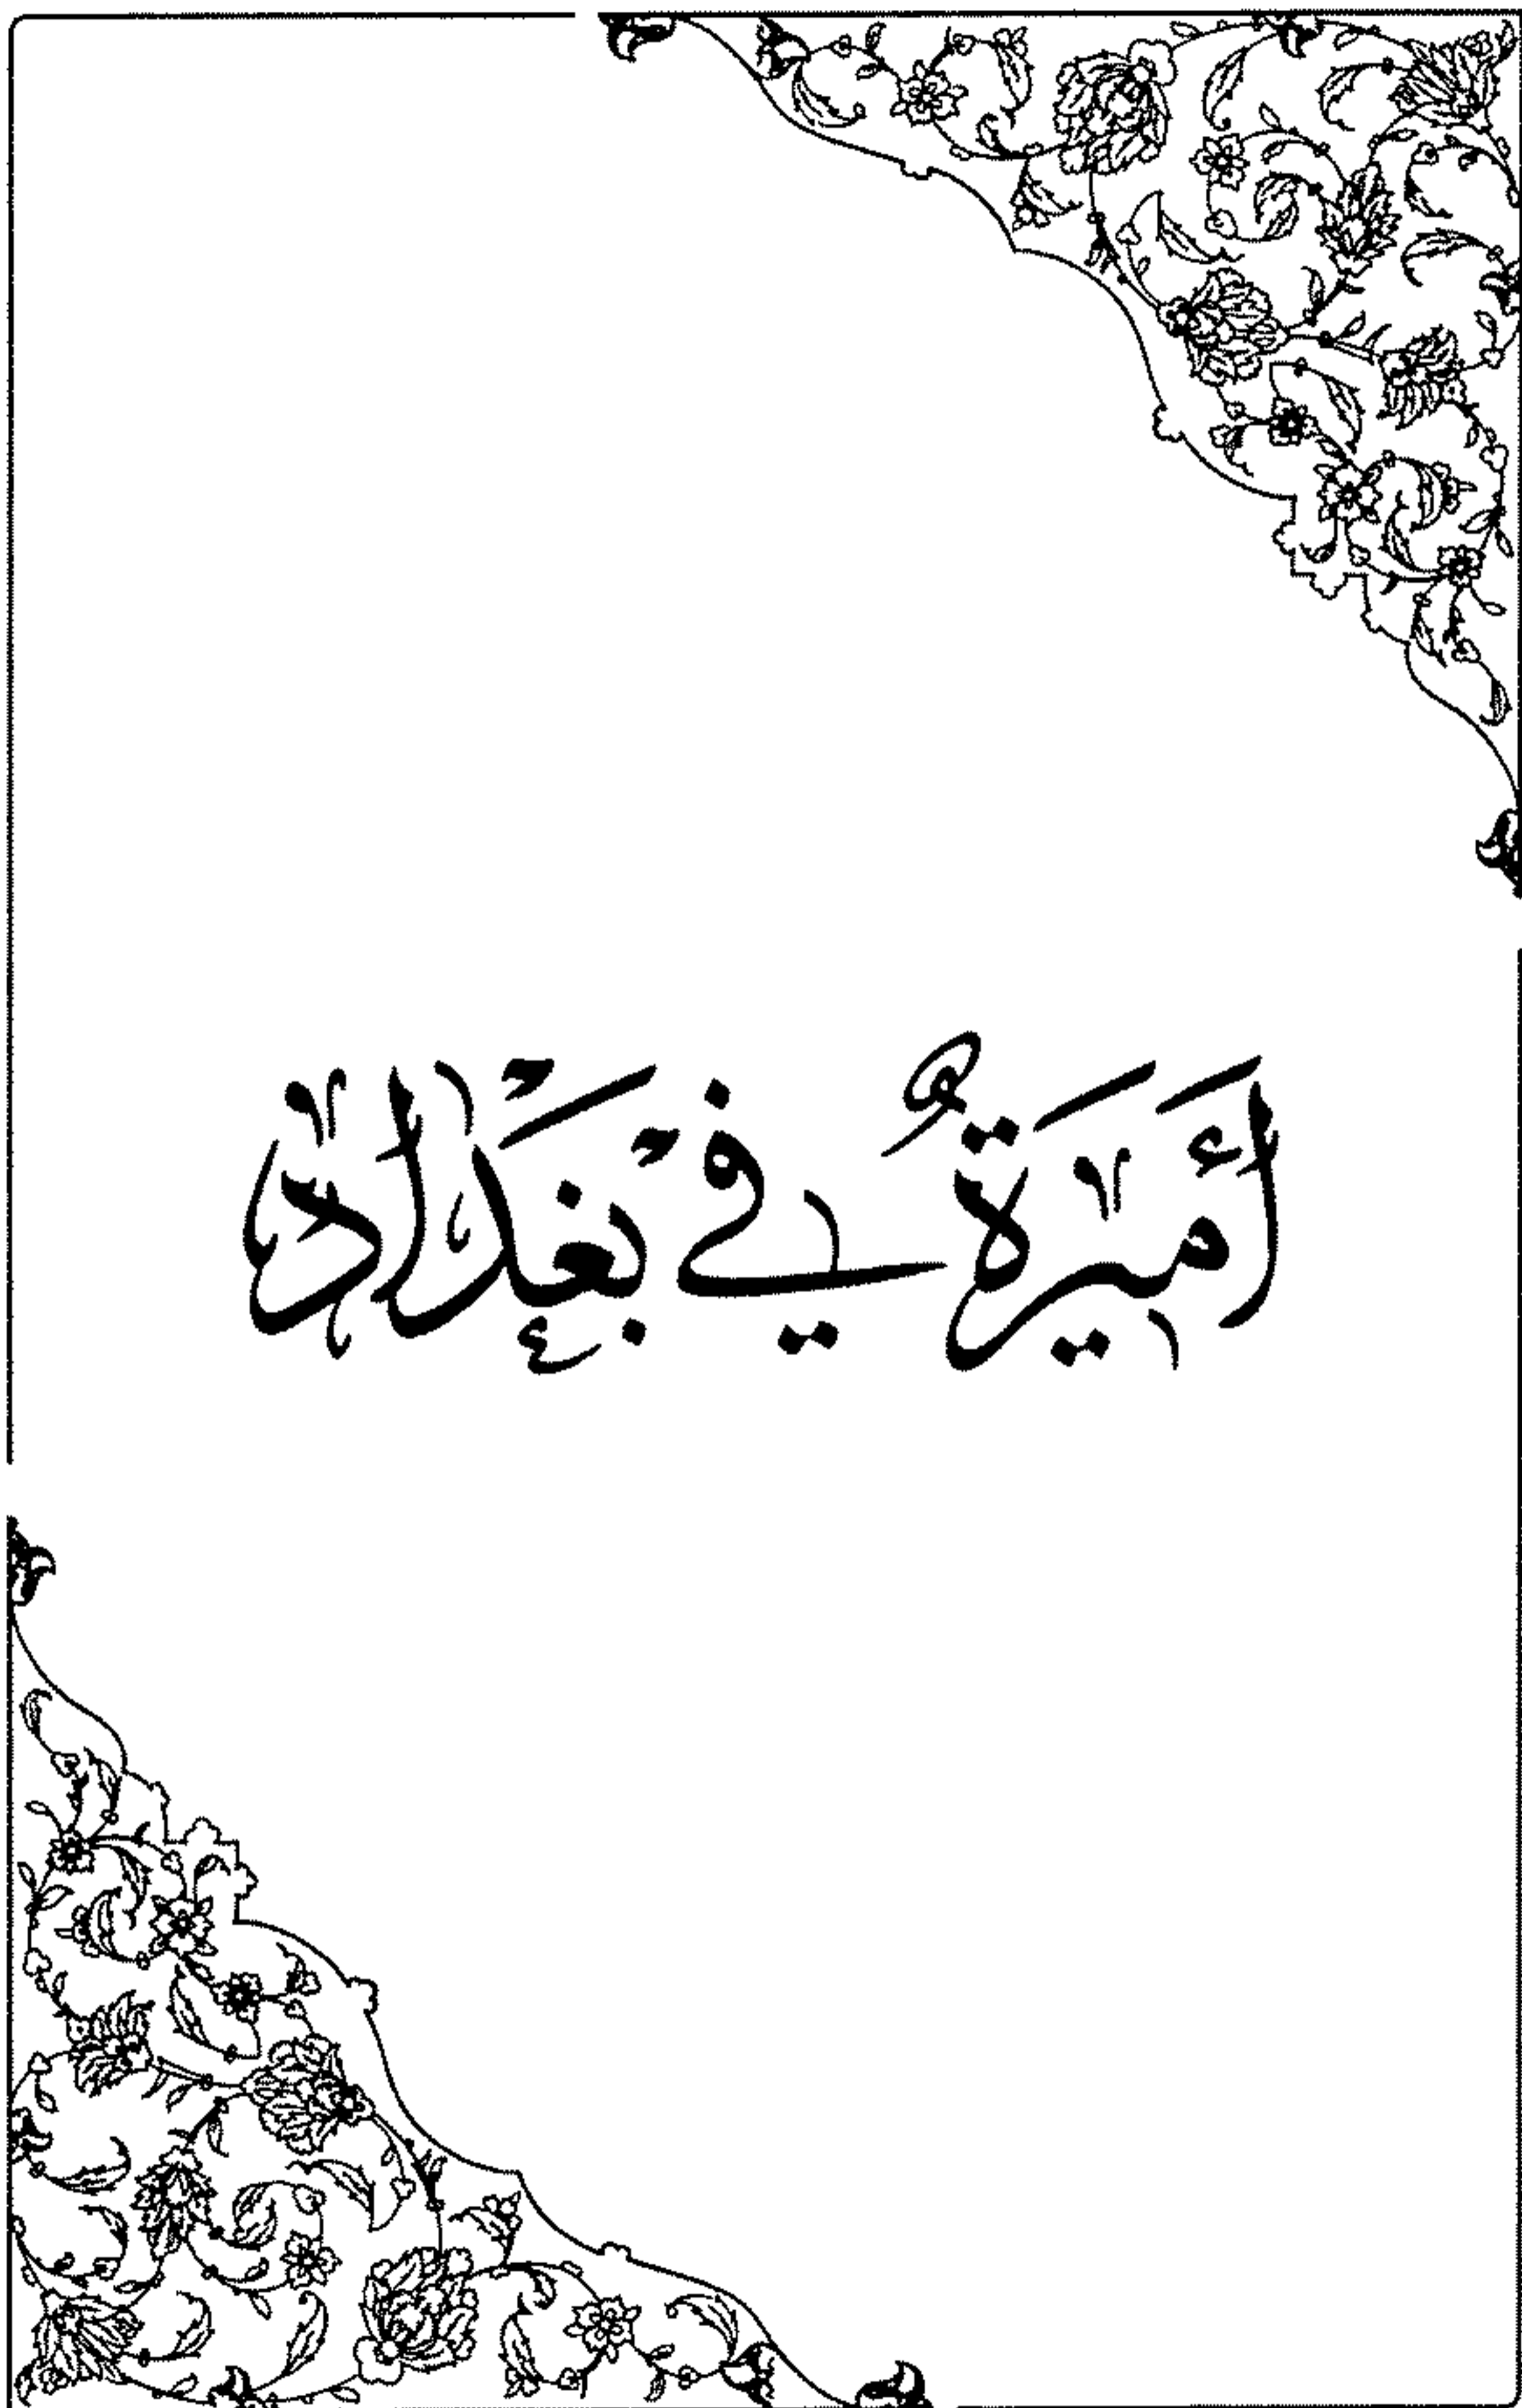 أَمَيْرَةٌ في بَغْدَاد